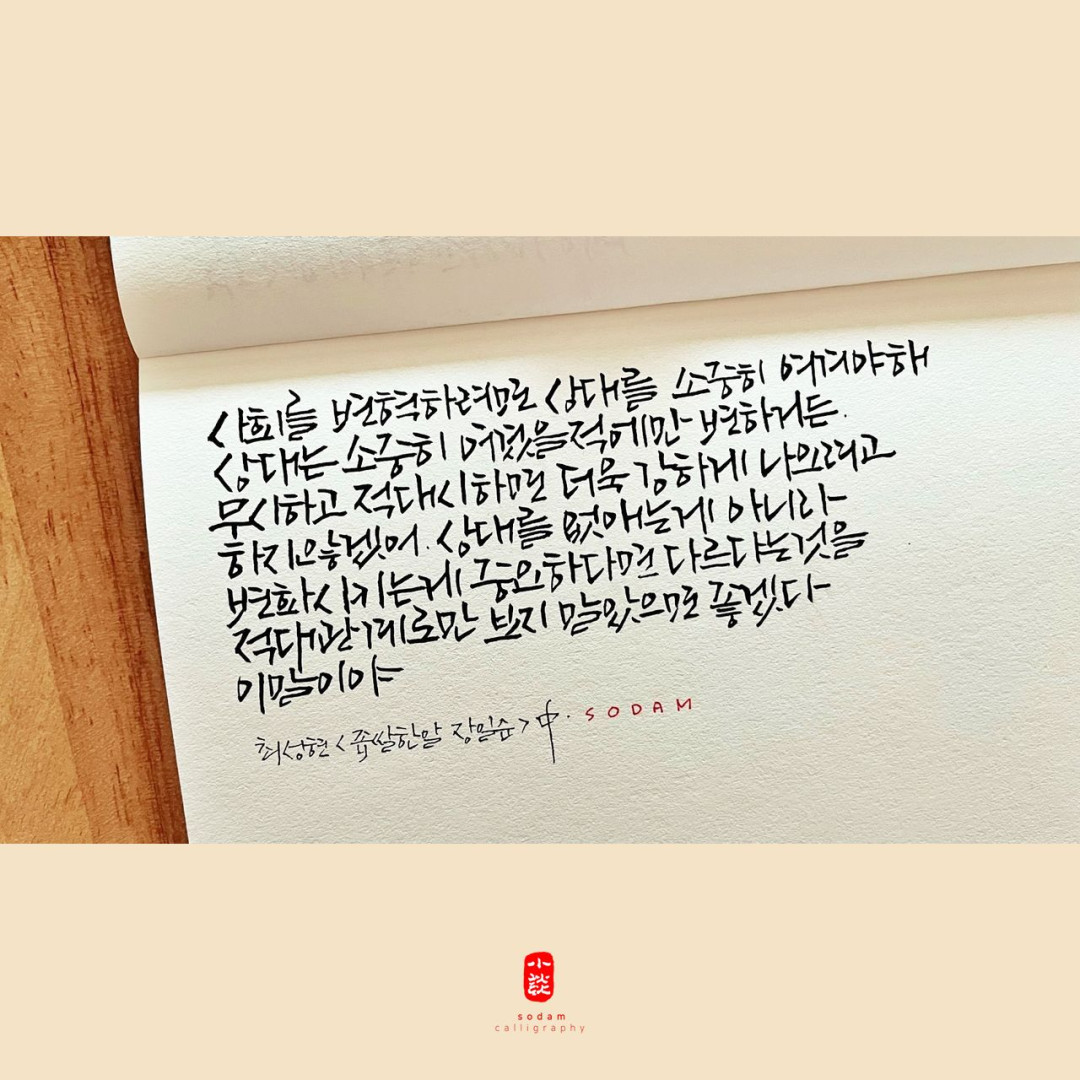 사회를 변혁하려면 상대를 소중히 여겨야해
상대는 소중히 여겼을적에만 변하거든.
무시하고 적대시하면 더욱 강하게 나오려고
하지않겠어. 상대를 없애는게 아니라
변화시키는게 중요하다면 다르다는것을
적대관계로만 보지 말았으면 좋겠다
이말이야
최성현 <좁쌀한알 장일순> 中. SODAM
小談
sodam
calligraphy